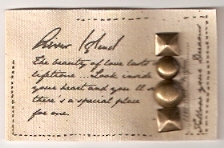 River Island
The beauty of love lasts a
lifetime ... Look inside
your heart and you'll see
there's a special place
for me.
Follow your Dreams